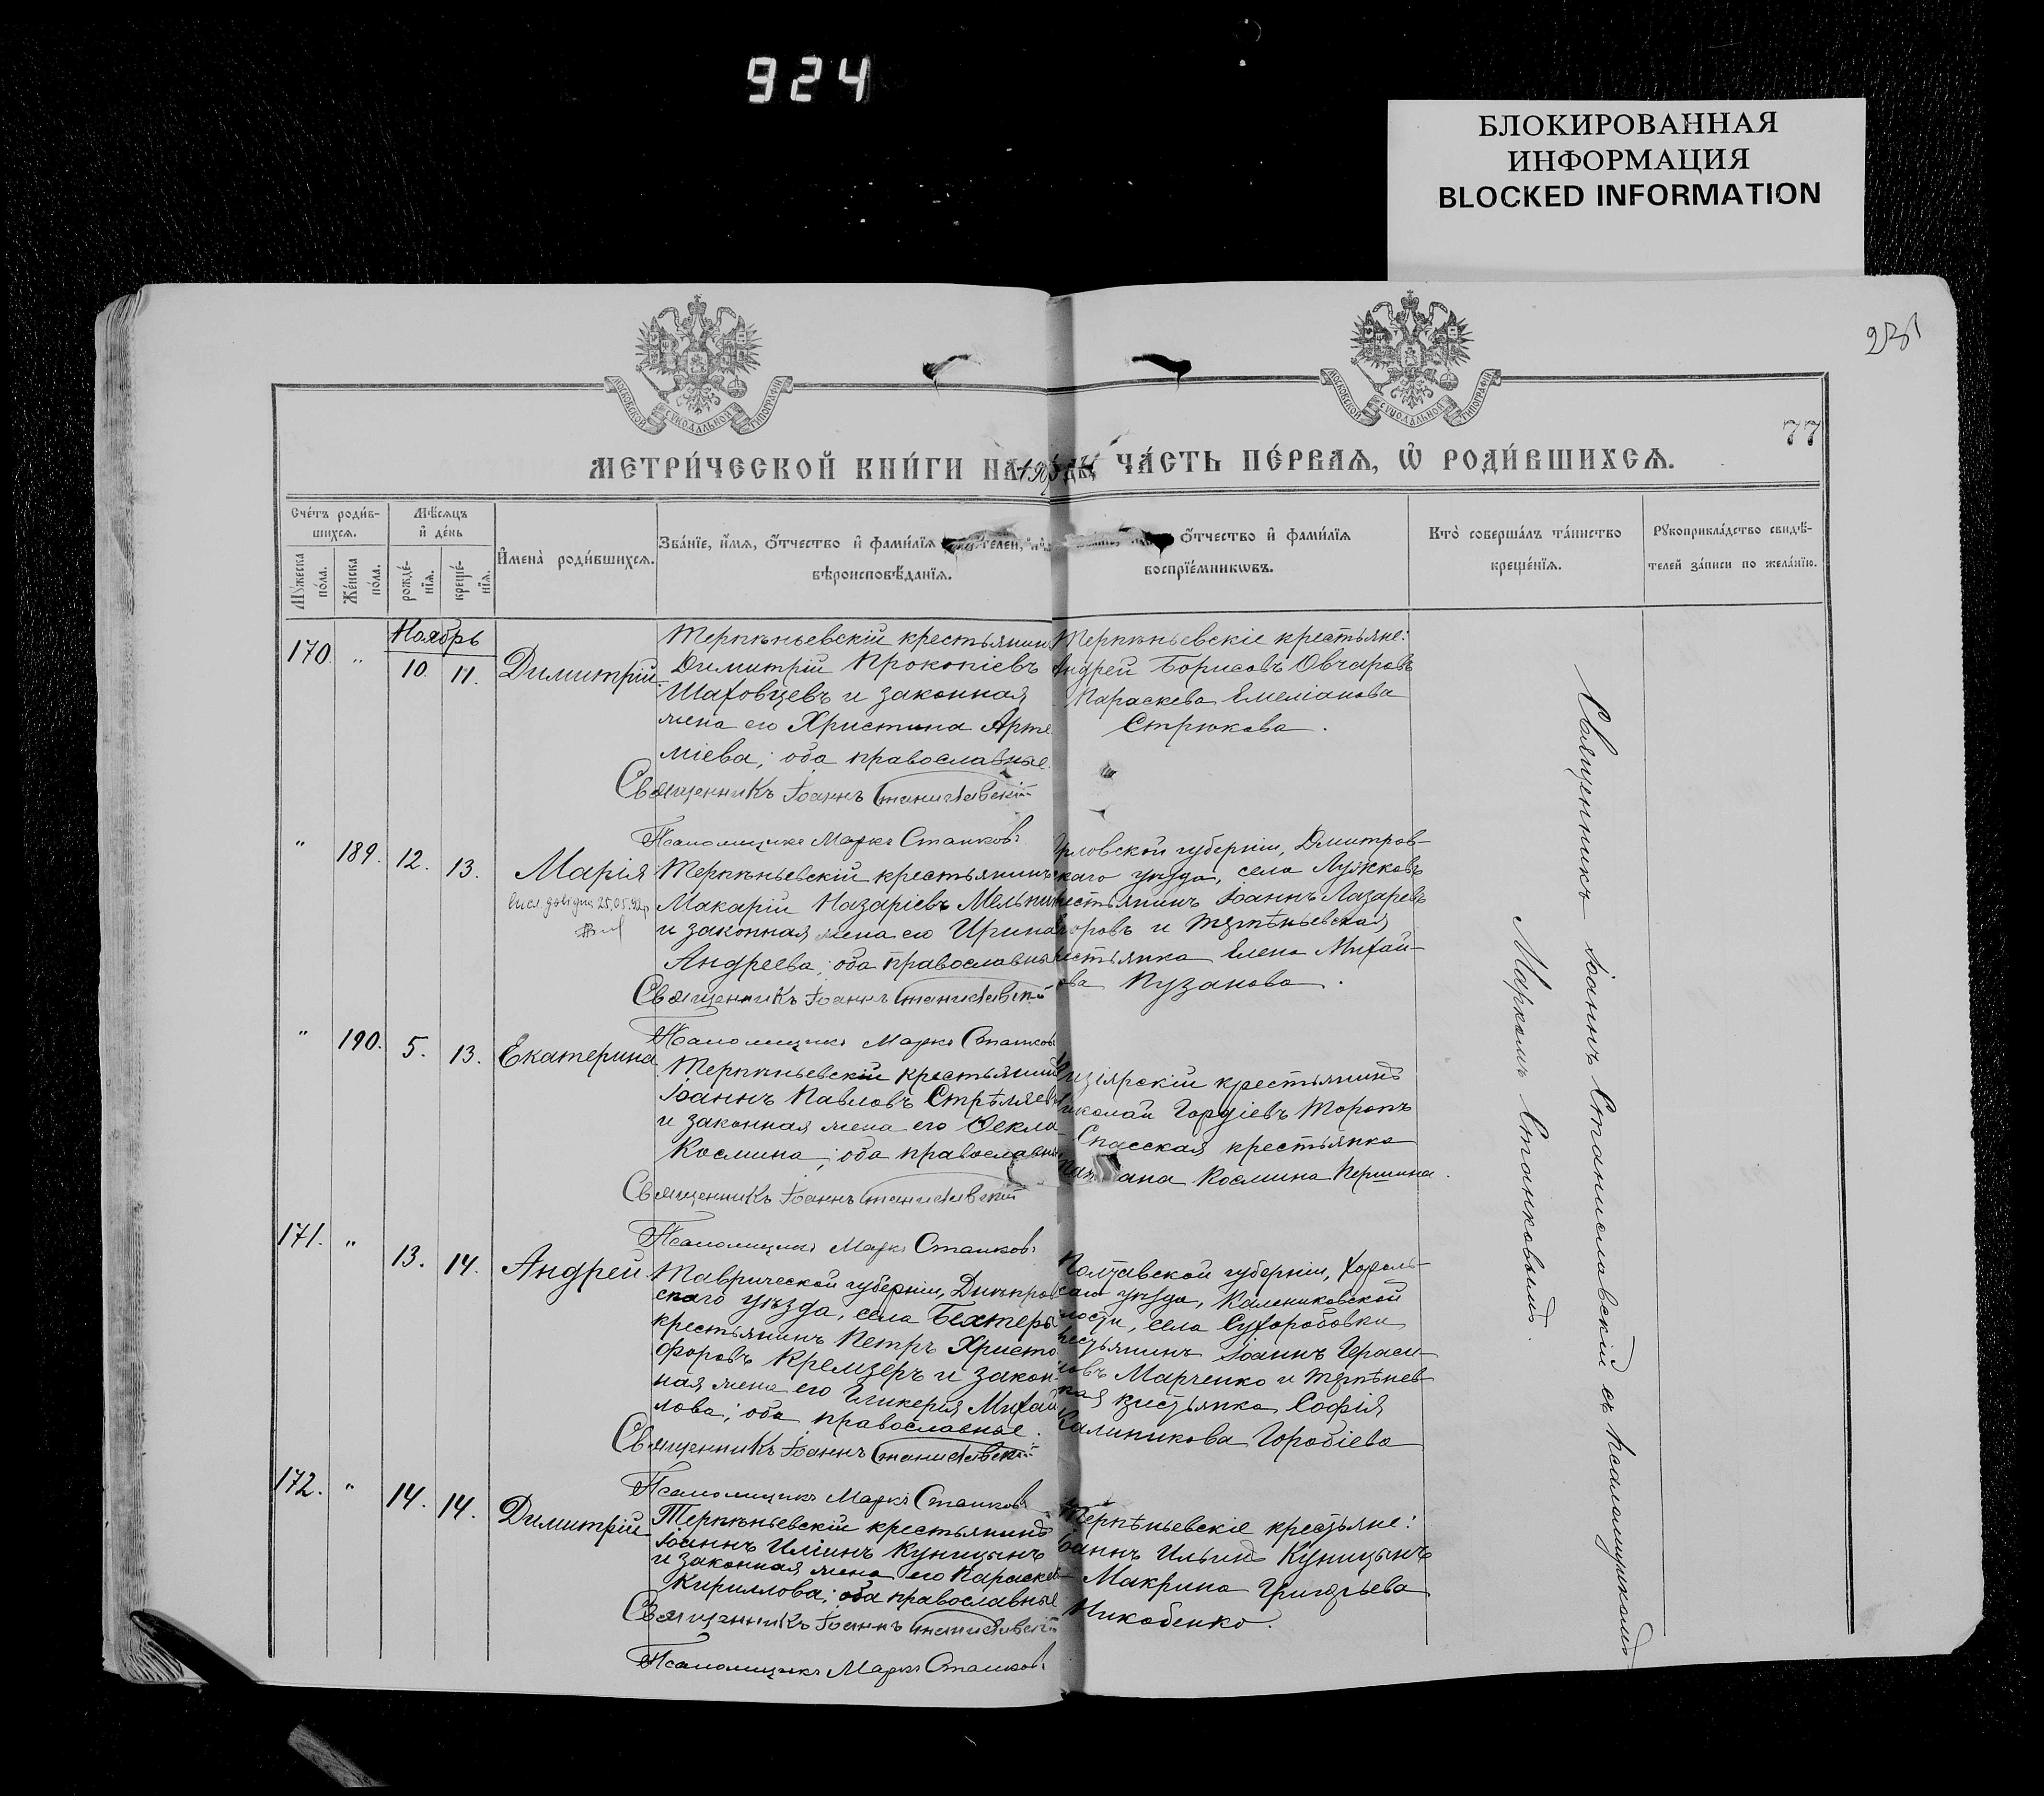 924
БЛОКИРОВАННАЯ
ИНФОРМАЦИЯ
BLOCKED INFORMATION
231
77
МОСКОВСКОЙ СУНОДАЛЬНОЙ ТИПОГРАФІИ
МОСКОВСКОЙ СУНОДАЛЬНОЙ ТИПОГРАФІИ
МЕТРИ́ЧЕСКОЙ КНИ́ГИ НА ЧА́СТЬ ПЕ́РВАѦ, Ѡ҆ РОДИ́ВШИХСѦ.
Сче́тъ роди́в-
шихсѧ.
Мꙋ́жеска по́ла.
Же́нска по́ла.
Мѣ́сѧцъ
и҆ де́нь
рожде́-
нїѧ.
креще́-
нїѧ.
И҆мена̀ роди́вшихсѧ.
Зва́нїе, и҆́мѧ, ѻ҆́тчество и҆ фами́лїѧ
вѣроисповѣ́данїѧ.
ѻ҆́тчество и҆ фами́лїѧ
воспрїе́мникѡвъ.
Кто̀ соверша́лъ та́инство
креще́нїѧ.
Рꙋкоприкла́дство свидѣ́-
телей за́писи по жела́нїю.
Ноябрь
170. " 10. 11. Димитрій
Терпѣньевскій крестьянинъ
Димитрій Прокопіевъ
Шаховцевъ и законная
жена его Христина Арте
міева; оба православные.
Священникъ Іоаннъ Станиславскій
Псаломщикъ Маркъ Станковъ
Терпѣньевскіе крестьяне:
Андрей Борисовъ Овчаровъ
Параскева Емеліанова
Стрюкова.
" 189. 12. 13. Марія
25.05.92р
Терпѣньевскій крестьянинъ
Макарій Назаріевъ Мельник
и законная жена его Ирина
Андреева; оба православные
Священникъ Іоаннъ Станиславскій
Псаломщикъ Маркъ Станковъ
Орловской губерніи, Дмитров-
скаго уѣзда, села Лужковъ
крестьянинъ Іоаннъ Лазаревъ
и Терпѣньевская
крестьянка Елена Михай-
лова Пузанова.
" 190. 5. 13. Екатерина
Терпѣньевскій крестьянинъ
Іоаннъ Павловъ Стрѣляевъ
и законная жена его Ѳекла
Космина; оба православные
Священникъ Іоаннъ Станиславскій
Псаломщикъ Маркъ Станковъ
крестьянинъ
Николай Гордіевъ Торопъ
Спасская крестьянка
Космина Першина.
171. " 13. 14. Андрей.
Таврической губерніи, Днѣпров
скаго уѣзда, села Бехтеры
крестьянинъ Петръ Христо
форовъ Кремзеръ и закон-
ная жена его Гликерія Михай
лова; оба православные.
Священникъ Іоаннъ Станиславскій
Псаломщикъ Маркъ Станковъ
Полтавской губерніи, Хороль-
скаго уѣзда, Калениковской
волости, села Сухорабовки
крестьянинъ Іоаннъ Гераси-
мовъ Марченко и Терпѣнев-
ская крестьянка Софія
Калиникова Горобіева
172. " 14. 14. Димитрій
Терпѣньевскій крестьянинъ
Іоаннъ Иліинъ Куницынъ
и законная жена его Параскева
Кириллова; оба православные
Священникъ Іоаннъ Станиславскій
Псаломщикъ Маркъ Станковъ
Терпѣньевскіе крестьяне:
Іоаннъ Ильинъ Куницынъ
Макрина Григорьева
Никобенко.
Священникъ Іоаннъ Станиславскій съ псаломщикомъ
Маркомъ Станковымъ.